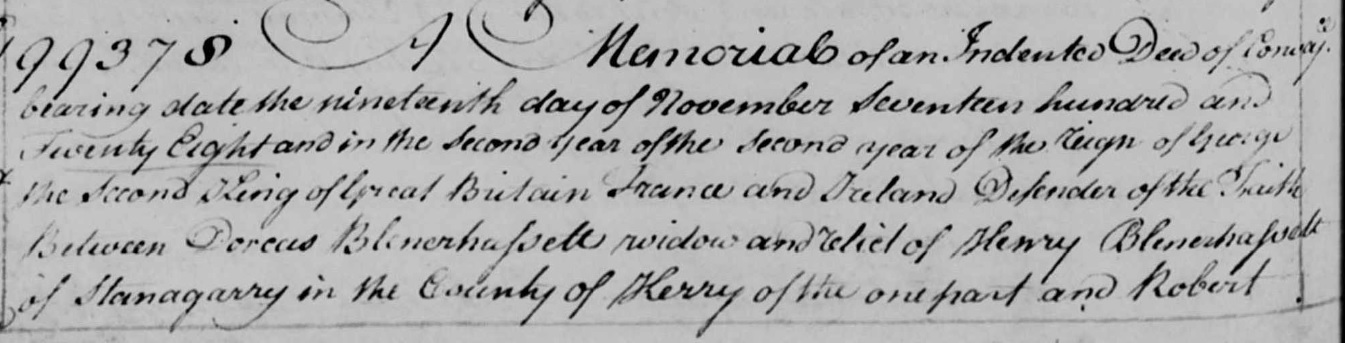 99378 A Memorial of an Indented Deed of Convay.ce
bearing date the nineteenth day of November Seventeen hundred and
Twenty Eight and in the Second Year of the Second year of the Reign of George
the Second King of Great Britain France and Ireland Defender of the Faith
Between Dorcas Blenerhassett widow and relict of Henry Blenerhassett
of Stanagarry in the County of Kerry of the one part and Robert